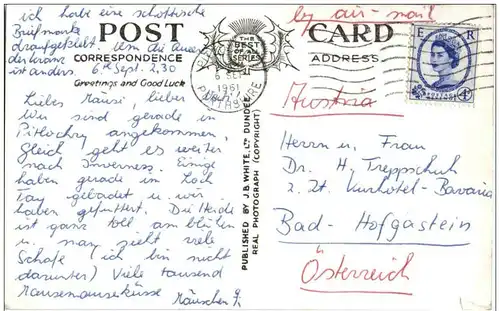 ich habe eine schottische
Briefmarke
draufgeklebt. Um die Augen
der Kranz
ist anders.
6th Sept. 2,30
POST CARD
THE
BEST
OF ALL
SERIES
CORRESPONDENCE
ADDRESS
Greetings and Good Luck
by air-mail
E R
POSTAGE
4d
6 SEP
1961
PERTHSHIRE
Liebes Mäusi, lieber
Wir sind gerade in
Pitlochry angekommen,
Gleich geht es weiter
nach Inverness. Einige
haben gerade im Loch
Tay gebadet u. wir
haben gefuttert. Die Heide
ist ganz toll am blühen
u. man sieht viele
Schafe (ich bin nicht
darunter) Viele tausend
Mausemauseküsse
Mäuschen
PUBLISHED BY J. B. WHITE, LTD DUNDEE
REAL PHOTOGRAPH (COPYRIGHT)
Austria
Herrn u. Frau
Dr. H. Treppschuh
z. Zt. Kurhotel-Bavaria
Bad-Hofgastein
Österreich